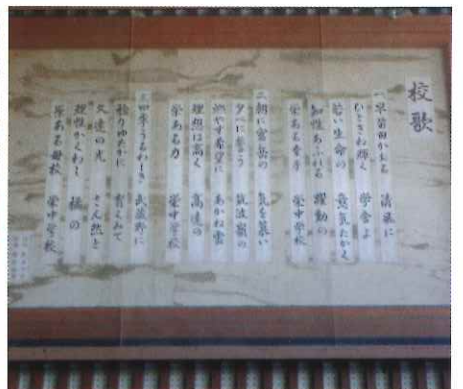 校歌
一、早苗田かおる 清流に
ひときわ輝く 学舎よ
若い生命の 意気たかく
知性あふれる 躍動の
栄ある 栄中学校
二、朝に富岳の 気を装い
夕べに 筑波嶺の
燃やす希望に あかね雲
理想は高く 高遠の
栄ある力 栄中学校
三、四季うるわしき 武蔵野に
稔りゆたかに 育くみて
久遠の光 さん然と
理性かぐわし 橘の
栄ある母校 栄中学校